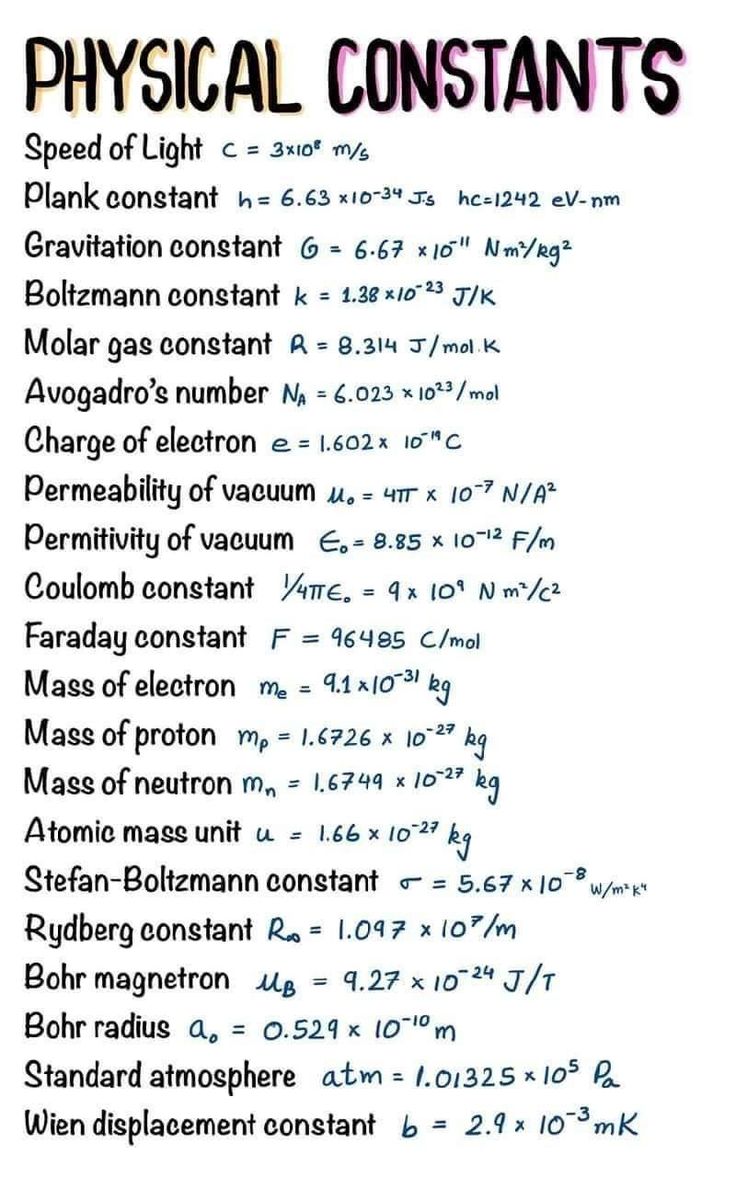 PHYSICAL CONSTANTS
Speed of Light c = 3×10⁸ m/s
Plank constant h = 6.63 ×10⁻³⁴ J.s hc=1242 eV-nm
Gravitation constant G = 6.67 ×10⁻¹¹ Nm²/kg²
Boltzmann constant k = 1.38 ×10⁻²³ J/K
Molar gas constant R = 8.314 J/mol.K
Avogadro's number Nᴀ = 6.023 × 10²³/mol
Charge of electron e = 1.602 × 10⁻¹⁹ C
Permeability of vacuum μ₀ = 4π × 10⁻⁷ N/A²
Permitivity of vacuum ϵ₀ = 8.85 × 10⁻¹² F/m
Coulomb constant 1/4πϵ₀ = 9 × 10⁹ N m²/C²
Faraday constant F = 96485 C/mol
Mass of electron mₑ = 9.1 ×10⁻³¹ kg
Mass of proton mₚ = 1.6726 × 10⁻²⁷ kg
Mass of neutron mₙ = 1.6749 × 10⁻²⁷ kg
Atomic mass unit u = 1.66 × 10⁻²⁷ kg
Stefan-Boltzmann constant σ = 5.67 × 10⁻⁸ W/m²K⁴
Rydberg constant R∞ = 1.097 × 10⁷/m
Bohr magnetron μB = 9.27 × 10⁻²⁴ J/T
Bohr radius a₀ = 0.529 × 10⁻¹⁰ m
Standard atmosphere atm = 1.01325 × 10⁵ Pa
Wien displacement constant b = 2.9 × 10⁻³ mK